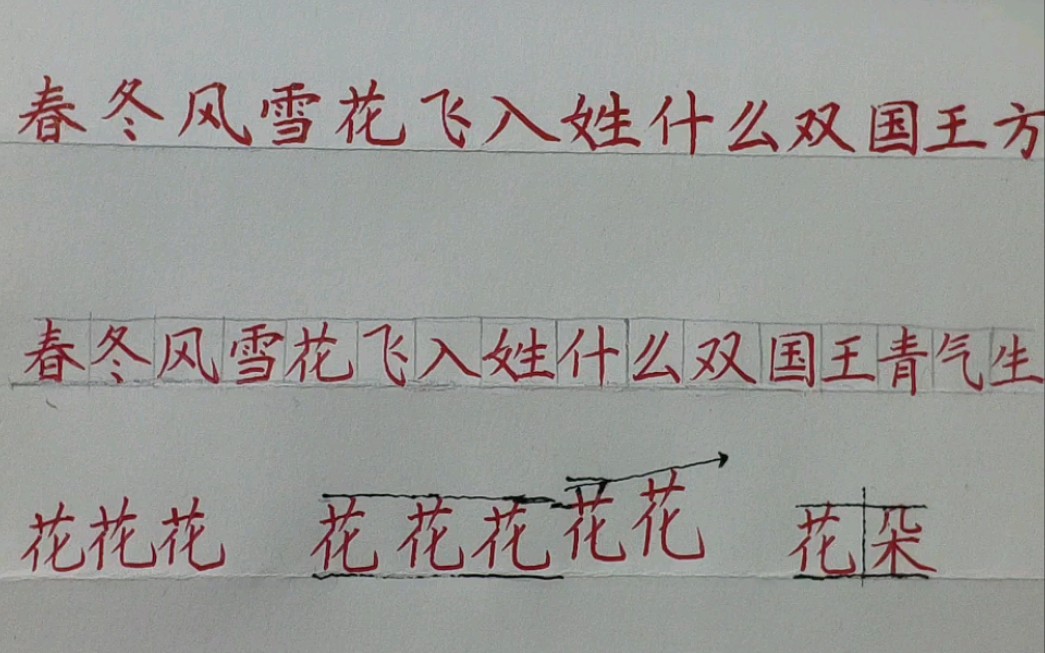 春冬风雪花飞入姓什么双国王方
春冬风雪花飞入姓什么双国王青气生
花花花 花花花花花 花朵